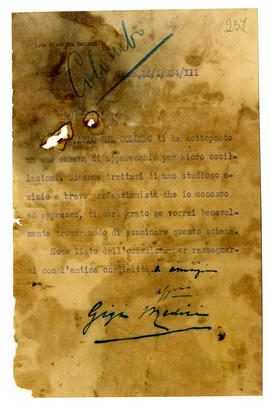 257
LUIGI MEDICI DEL VASCELLO
Colombo
26/1/934/XII
COLOMBO ti ha sottoposto
un suo schema di apparecchio per micro oscil-
lazioni. Siccome trattasi di uno studioso e-
simio e bravo professionista che io conosco
ed apprezzo, ti sarò grato se vorrai benevol-
mente trovar modo di esaminare questo schema.
Sono lieto dell'occasione per rassegnar-
mi con l'antica cordialità e amicizia
aff.mo
Gigi Medici